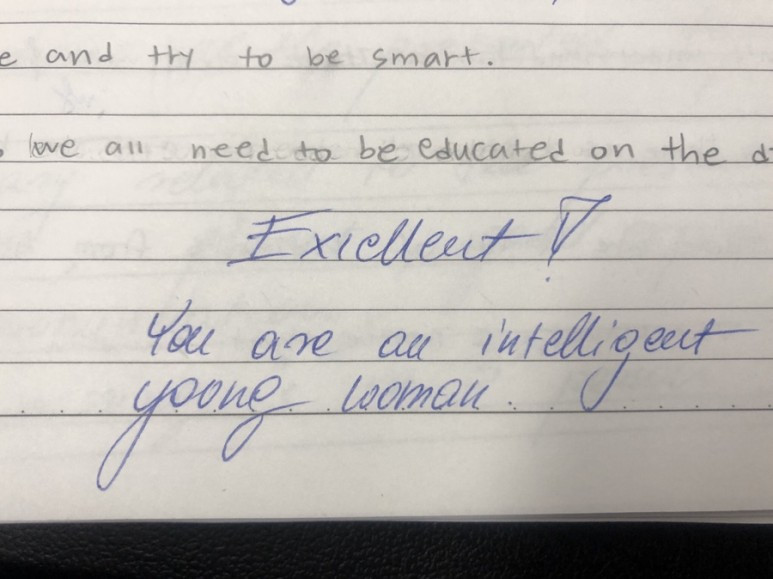 e and try to be smart.
love all need to be educated on the d
Exicllent!
You are an intelligent
yoong woman.